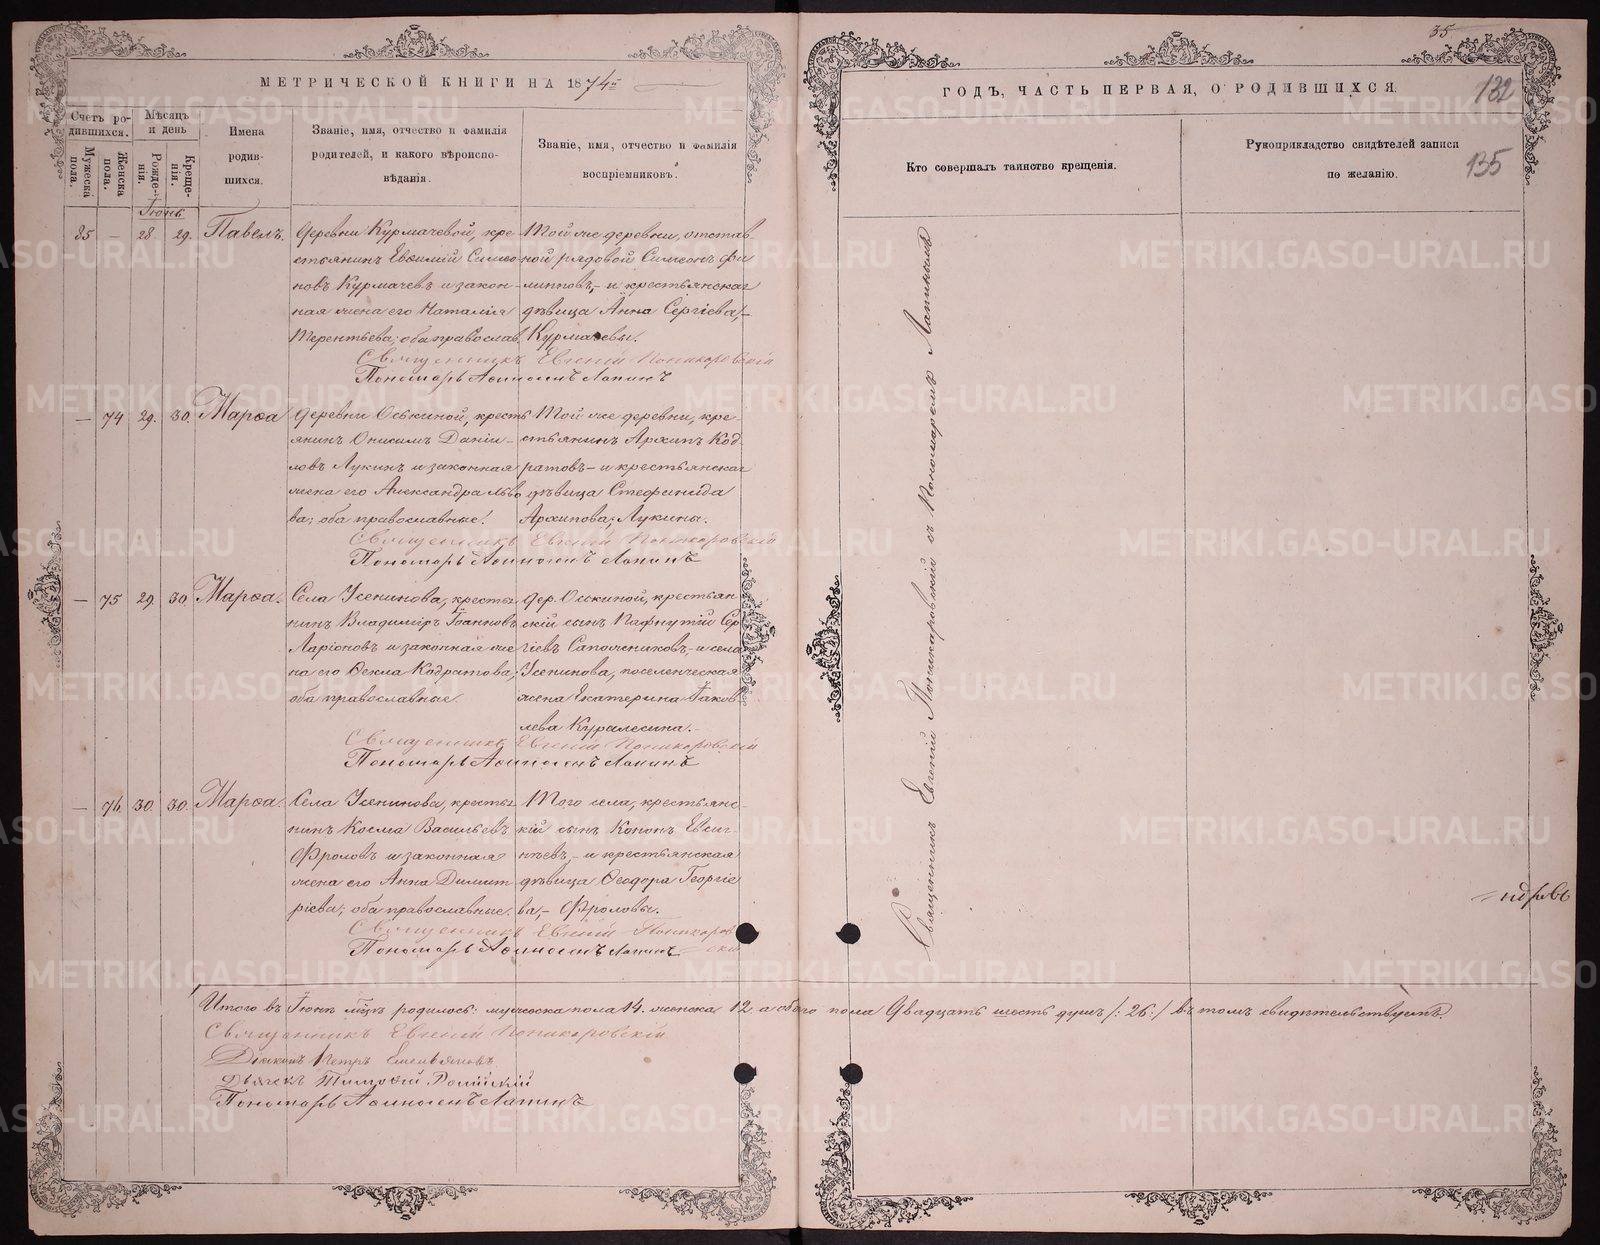 35
МЕТРИЧЕСКОЙ КНИГИ НА 1874
ГОДЪ, ЧАСТЬ ПЕРВАЯ, О РОДИВШИХСЯ.
132
135
Счетъ ро-
дившихся.
Мужеска
пола.
Женска
пола.
Мѣсяцъ
и день
Рожде-
нія.
Креще-
нія.
Имена
родив-
шихся.
Званіе, имя, отчество и фамилія
родителей, и какого вѣроиспо-
вѣданія.
Званіе, имя, отчество и фамилія
воспріемниковъ.
Кто совершалъ таинство крещенія.
Рукоприкладство свидѣтелей записи
по желанію.
Іюнь
85 — 28 29. Павелъ.
Деревни Курмачевой, кре-
стьянинъ Евѳимій Симео-
новъ Курмачевъ и закон-
ная жена его Наталія
Терентьева; оба православ.
Той же деревни, отстав-
ной рядовой Симеонъ Фи-
липповъ,- и крестьянская
дѣвица Анна Сергіева,-
Курмачевы.
Священникъ Евгеній Поникаровскій
Пономарь Лапинъ
— 74 29. 30. Марѳа
Деревни Оськиной, кресть
янинъ Онисимъ Даніи-
ловъ Лукинъ и законная
жена его Александра Льво
ва; оба православные.
Той же деревни, кре-
стьянинъ Архипъ Код-
ратовъ- и крестьянская
дѣвица Стефанида
Архипова; Лукины.
Священникъ Евгеній Поникаровскій
Пономарь Лапинъ
— 75 29. 30 Марѳа.
Села Усенинова, кресть
нинъ Владиміръ Іоанновъ
Ларіоновъ и законная же
на его Ѳекла Кодратова;
оба православные.
Дер. Оськиной, крестьян-
скій сынъ Пафнутій Сер
гіевъ Сапожниковъ,- и села
Усенинова, поселенческая
жена Екатерина Іаков
лева Куралесина.-
Священникъ Евгеній Поникаровскій
Пономарь Лапинъ
— 76 30. 30. Марѳа.
Села Усенинова, кресть
нинъ Косма Васильевъ
Фроловъ и законная
жена его Анна Димит
ріева; оба православные.
Того села, крестьянс-
кій сынъ Кононъ Евсиг-
нѣевъ,- и крестьянская
дѣвица Ѳеодора Георгіе
ва,- Фроловы.
Священникъ Евгеній Поникаров
скій
Пономарь Лапинъ
Священникъ Евгеній Поникаровскій съ Пономаремъ Лапинымъ
Итого въ Іюнѣ мѣсяцѣ родилось: мужеска пола 14. женска 12. а обоего пола Двадцать шесть душъ /: 26 :/ въ томъ свидѣтельствуемъ.
Священникъ Евгеній Поникаровскій
Діаконъ Петръ Емельяновъ
Дьячекъ Тимоѳій
Пономарь Лапинъ
METRIKI.GASO-URAL.RU